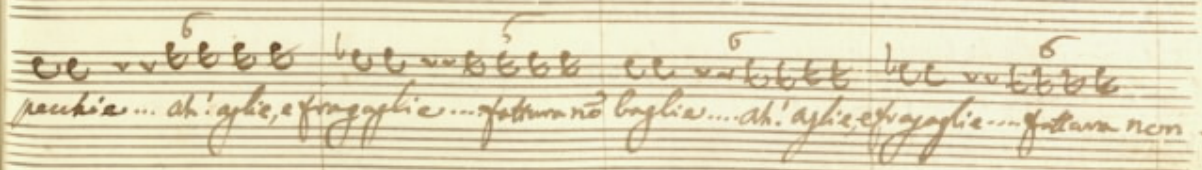 pecchie... ah! aglie, e fragaglie.... fattura nō baglie.... ah! aglie, e fragaglie.... fattura non